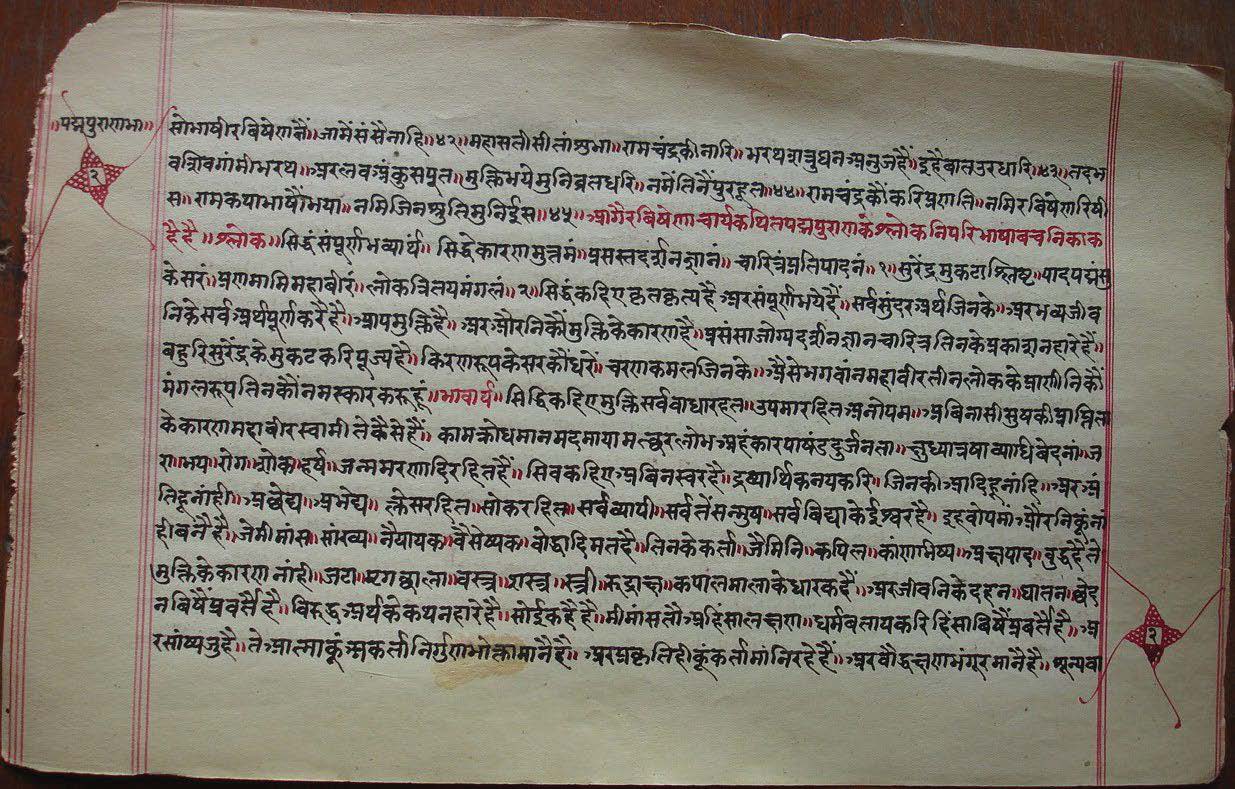 ॥पद्मपुराणभा॥
२
सोभाषी रबिषेणनैं॥जामें संसैनाहि॥४२॥महासतीसीतांशुभा॥रामचंद्रकीनारि॥भरथशत्रुघनअनुजहैं॥इहैबातउरधारि॥४३॥तदभ
वशिवगांमीभरथ॥अरलवअंकुसपूत॥मुक्तिभयेमुनिब्रतधरि॥नमैंतिनैंपुरहूत॥४४॥रामचंद्रकौंकरिप्रणति॥नमिरबिषेणरिषी
स॥रामकथाभाषौंभया॥नमिजिनश्रुतिमुनिईस॥४५॥आगैरबिषेणाचार्यकथितपद्मपुराणकेश्लोकनिपरिभाषाबचनिकाक
हैहै॥श्लोक॥सिद्धंसंपूर्णभव्यार्थं॥सिद्धेकारणमुत्तमं॥प्रसस्तदर्शनज्ञानं॥चारित्रंप्रतिपादनं॥१॥सुरेंद्रमुकटाश्लिष्ट॥पादपद्मंसु
केसरं॥प्रणमामिमहाबीरं॥लोकत्रितयमंगलं॥२॥सिद्धंकहिएकृतकृत्यहै॥अरसंपूर्णभयेहैं॥सर्वसुंदरअर्थजिनके॥अरभव्यजीव
निकेसर्वअर्थपूर्णकरैहै॥आपमुक्तिहै॥अरऔरनिकौंमुक्तिकेकारणहै॥प्रसंसाजोग्यदर्शनज्ञानचारित्रतिनकेप्रकाशनहारेहैं॥
बहुरिसुरेंद्रकेमुकटकरिपूज्यहै॥किरणरूपकेसरकौंधरे॥चरणकमलजिनके॥ऐसेभगवांनमहाबीरतीनलोककेप्राणीनिकौं
मंगलरूपतिनकौंनमस्कारकरूहूं॥भावार्थ॥सिद्धिकहिएमुक्तिसर्वबाधारहत॥उपमारहितअनोपम॥अबिनासीसुषकीप्राप्तिता
केकारणमहाबीरस्वामीतेकैसेहैं॥कामक्रोधमानमदमायामत्छरलोभअहंकारपाषंडदुर्जनता॥क्षुध्यात्रषाव्याधिबेदनांज
राभयरोगशोकहर्ष॥जन्ममरणादिरहितहैं॥सिवकहिएअबिनस्वरहै॥द्रव्यार्थिकनयकरि॥जिनकीआदिहूनांहि॥अरअं
तिहूनांही॥अछेद्य॥अभेद्य॥क्लेसरहित॥सोकरहित॥सर्वव्यापी॥सर्वतेंसन्मुष॥सर्वबिद्याकेईश्वरहै॥इहवोपमांऔरनिकूंनां
हीबनैहै॥जेमीमांस॥सांख्य॥नैयायक॥वैसेष्यक॥बोद्धादिमतहै॥तिनकेकर्ता॥जैमिनि॥कपिल॥कांणभिष्य॥अक्षपाद॥बुद्धहैते
मुक्तिकेकारणनांही॥जटा॥म्रगछाला॥बस्त्र॥शस्त्र॥स्त्री॥रुद्राक्ष॥कपालमालाकेधारकहैं॥अरजीवनिकेदहनघातनछेद
नबिषैंप्रवर्त्तैहै॥बिरुद्धअर्थकेकथनहारेहै॥सोईकहैहै॥मीमांसतौअहिंसालक्षण॥धर्मबतायकरिहिंसाबिषैंप्रवर्त्तैहै॥अ
रसांष्यजुहै॥तेआत्माकूंअकर्तानिर्गुणभोक्तामानैहै॥अरप्रकृतिहीकूंकर्तामांनिरहेहैं॥अरबौद्धक्षणभंगूरमानैहै॥शून्यवा
२